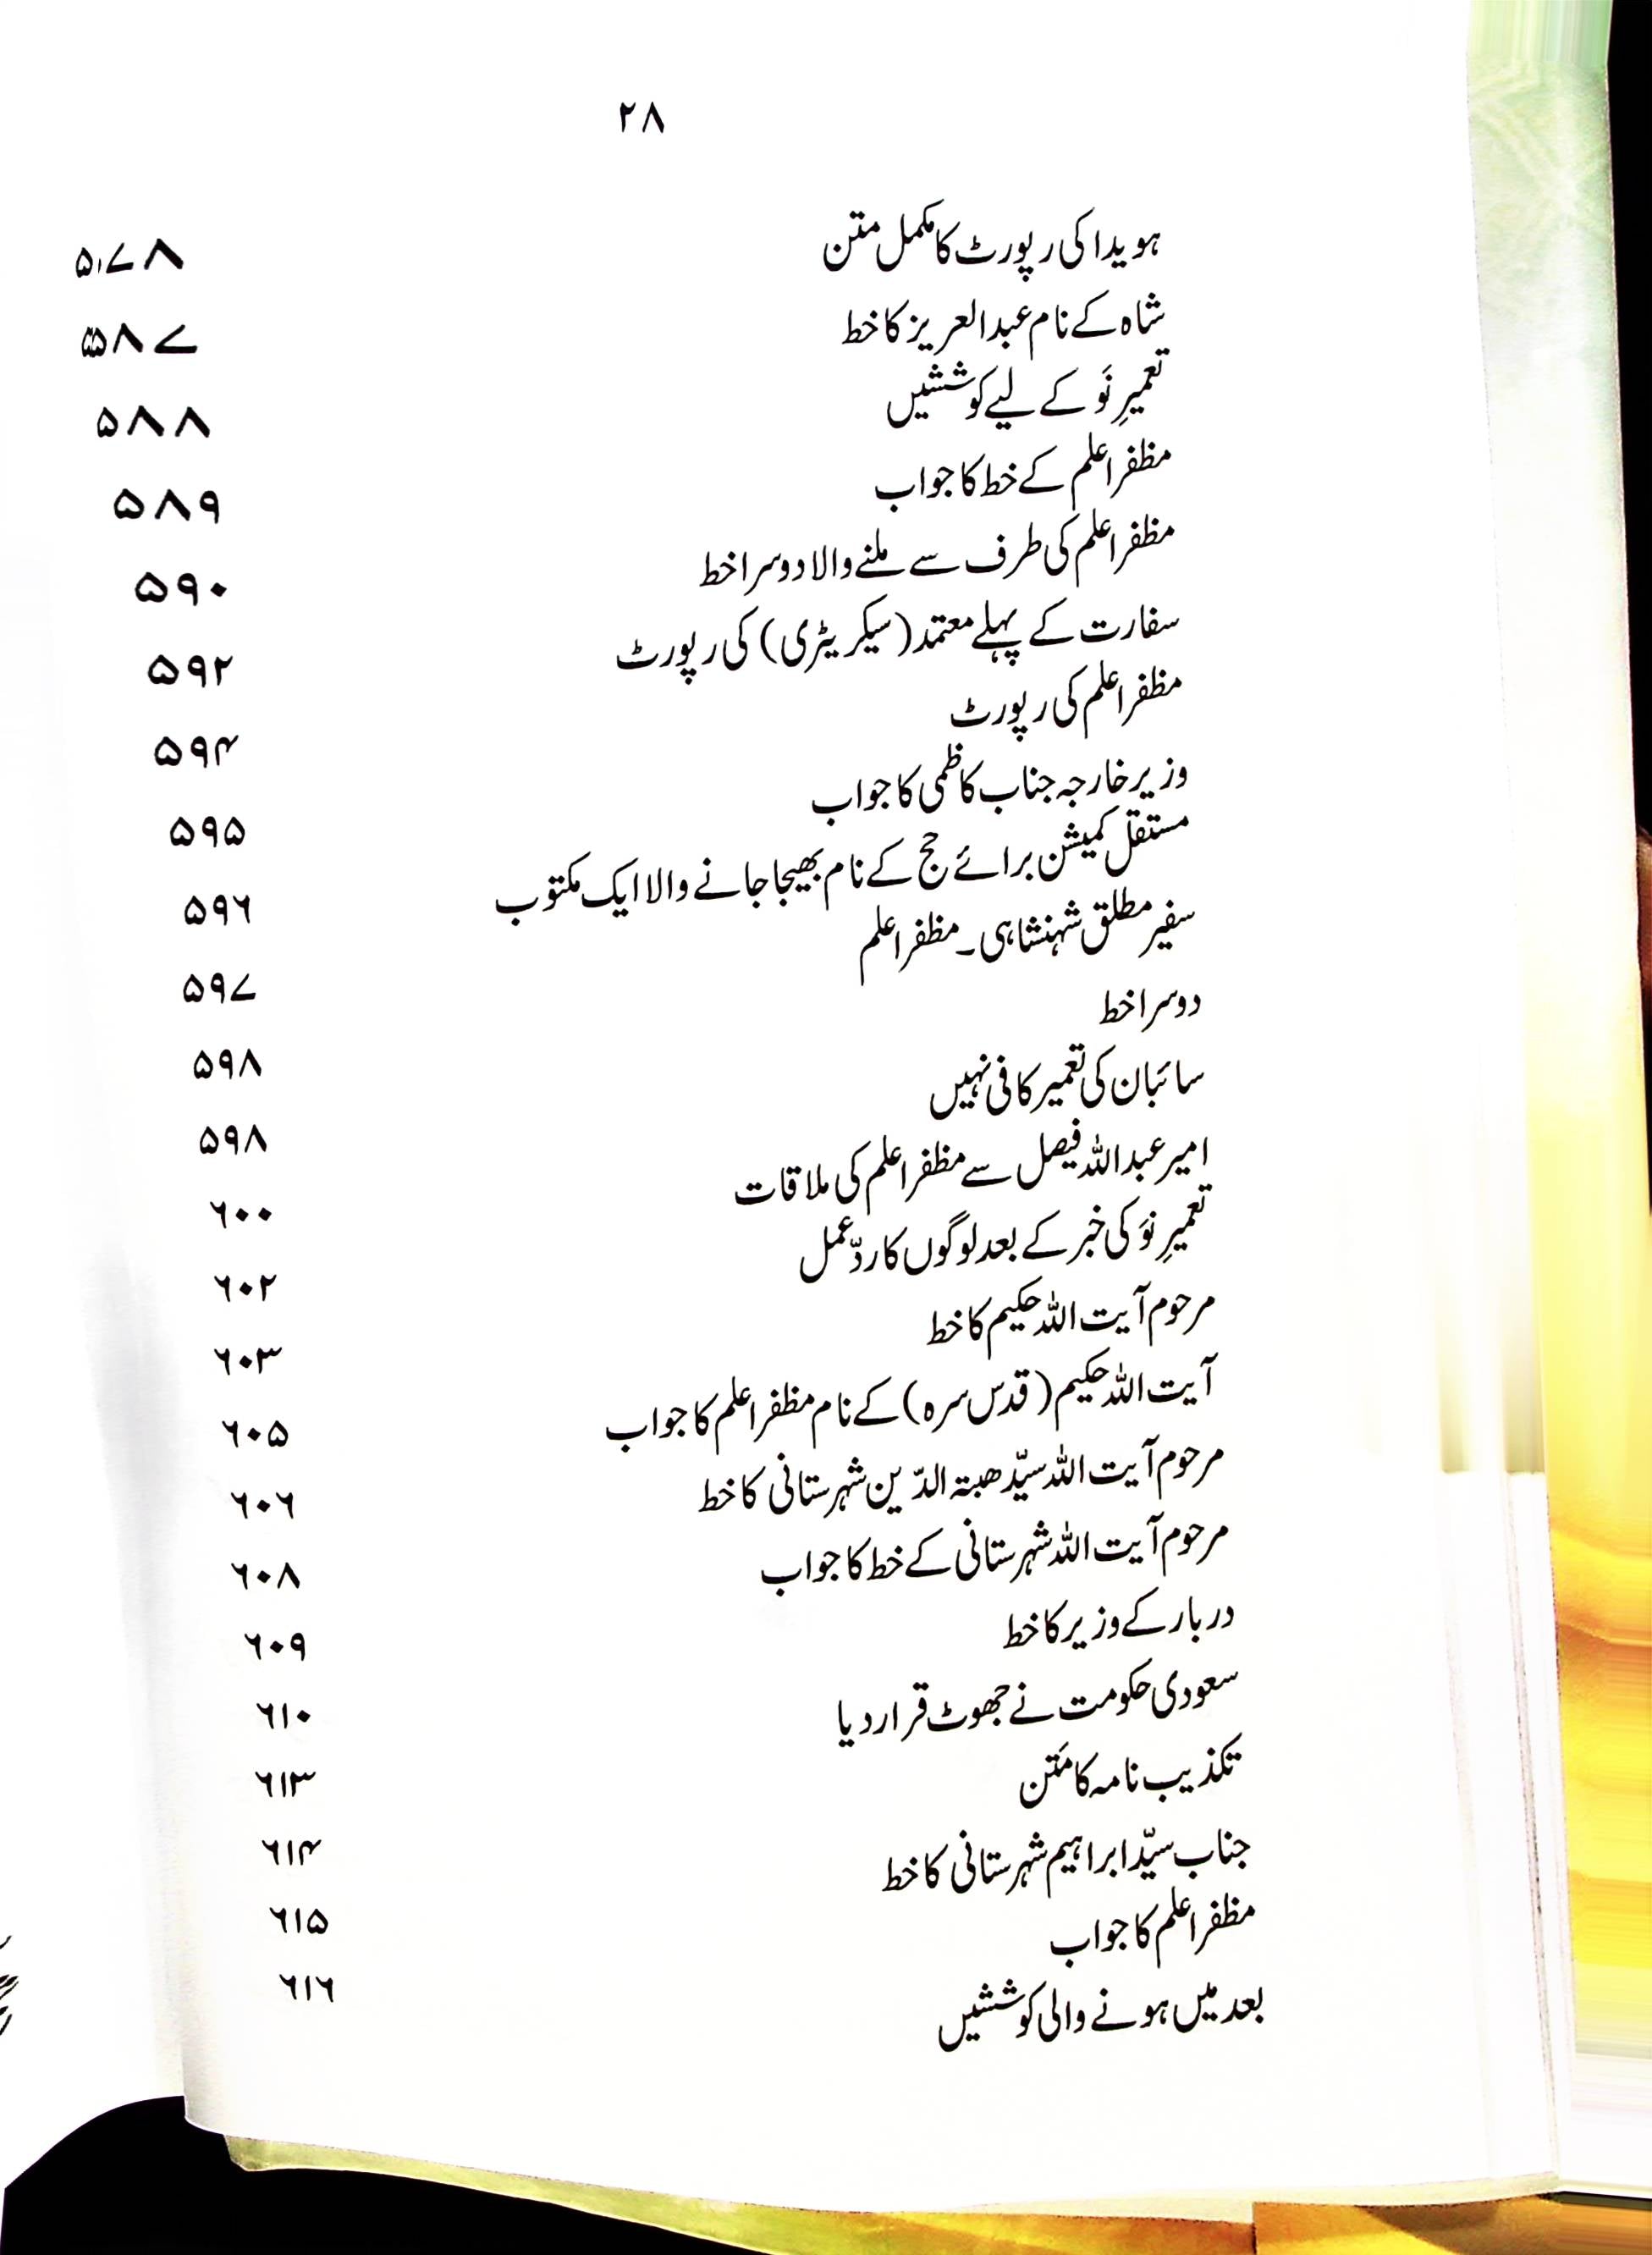 ۲۸
ہویدا کی رپورٹ کا مکمل متن ۵۷۸
شاہ کے نام عبدالعزیز کا خط ۵۸۷
تعمیرِ نَو کے لیے کوششیں ۵۸۸
مظفر اعلم کے خط کا جواب ۵۸۹
مظفر اعلم کی طرف سے ملنے والا دوسرا خط ۵۹۰
سفارت کے پہلے معتمد (سیکریٹری) کی رپورٹ ۵۹۲
مظفر اعلم کی رپورٹ ۵۹۴
وزیر خارجہ جناب کاظمی کا جواب ۵۹۵
مستقل کمیشن برائے حج کے نام بھیجا جانے والا ایک مکتوب ۵۹۶
سفیر مطلق شہنشاہی۔ مظفر اعلم ۵۹۷
دوسرا خط ۵۹۸
سائبان کی تعمیر کافی نہیں ۵۹۸
امیر عبداللہ فیصل سے مظفر اعلم کی ملاقات ۶۰۰
تعمیرِ نَو کی خبر کے بعد لوگوں کا ردّ عمل ۶۰۲
مرحوم آیت اللہ حکیم کا خط ۶۰۳
آیت اللہ حکیم (قدس سرہ) کے نام مظفر اعلم کا جواب ۶۰۵
مرحوم آیت اللہ سیّد ھبتہ الدّین شہرستانی کا خط ۶۰۶
مرحوم آیت اللہ شہرستانی کے خط کا جواب ۶۰۸
دربار کے وزیر کا خط ۶۰۹
سعودی حکومت نے جھوٹ قرار دیا ۶۱۰
تکذیب نامہ کا مَتن ۶۱۳
جناب سیّد ابراہیم شہرستانی کا خط ۶۱۴
مظفر اعلم کا جواب ۶۱۵
بعد میں ہونے والی کوششیں ۶۱۶